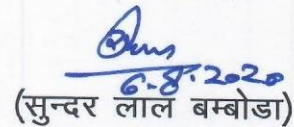 6-8-2020
(सुन्दर लाल बम्बोडा)